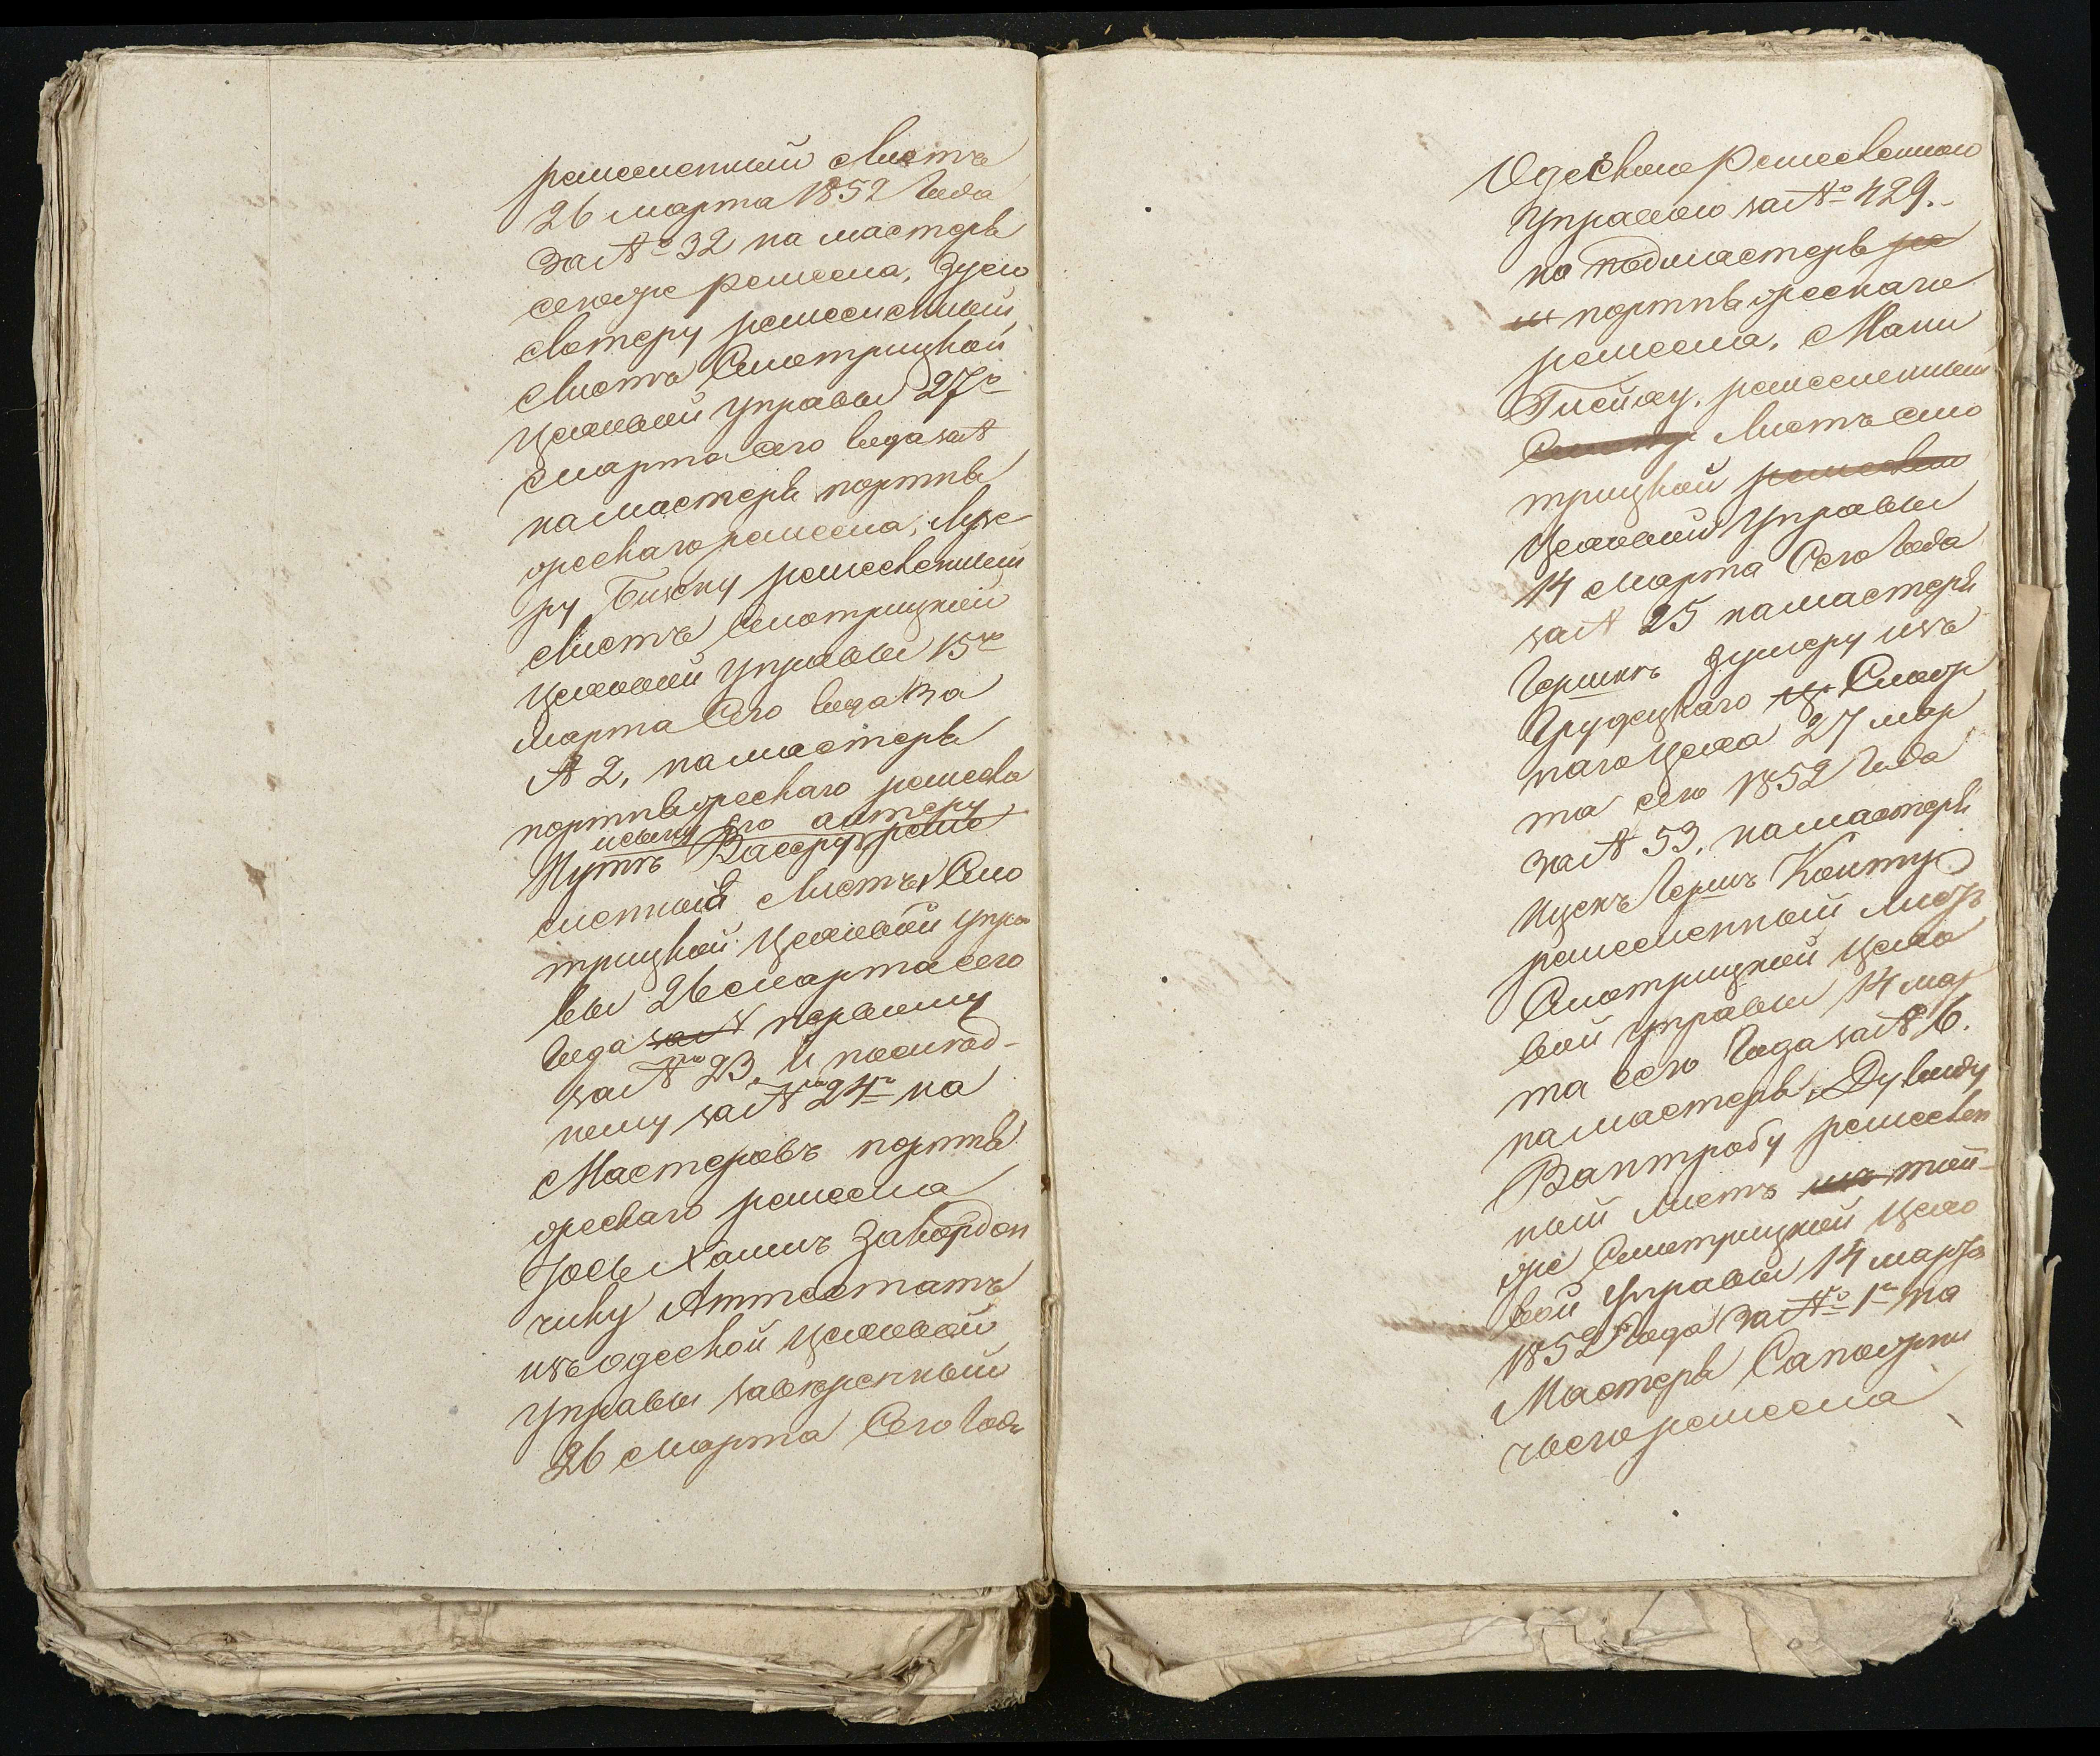 ремесленный Листъ
26 марта 1852 Года
За № 32 на мастера
ремесла, Зусю
Мотеру ремесленный
Листъ Смотрицкой
Цеховой управы 27го
марта сего года за №
на мастера портнѣ
жескаго ремесла, Лузе
ру Бизеку ремесленный
Листъ Смотрицкой
Цеховой управы 15го
марта Сего года За
№ 2, на мастера
портняжескаго ремесла
и сыну его антеру
Мутъ Васеру реме
сленный Листъ Смо
трицкой Цеховой упра
вы 26 марта сего
года за № первому
за № 23 и послѣд-
нему за № 24й на
Мастеровъ портня
жескаго ремесла
Іось Хаимъ Закордон
чику Аттестатъ
изъ одеской Цеховой
управы завѣренный
26 Марта Сего Года
Одескою Ремесленною
Управою за № 429.
на подмастеря ре
м портняжескаго
ремесла. Мани
Гисису. ремесленный
Листъ смо
трицкой ремеслен
Цеховой Управы
14 Марта Сего Года
за № 25 на мастеря
Гершкъ Зумеру изъ
Грудецкаго це Сляр
наго цеха 27 мар
та сего 1852 Года
за № 53, на мастеря
Ицекъ Гершъ Контур
ремесленный листъ
Смотрицкой Цехо
вой управы 14 мар
та сего Года за № 6.
на мастеря, Дувиду
Вантробу ремеслен
ный листъ изъ той-
же Смотрицкой Цехо
вой Управы 14 марта
1852 Года За № 1й на
Мастеря Сапожни
ческаго ремесла